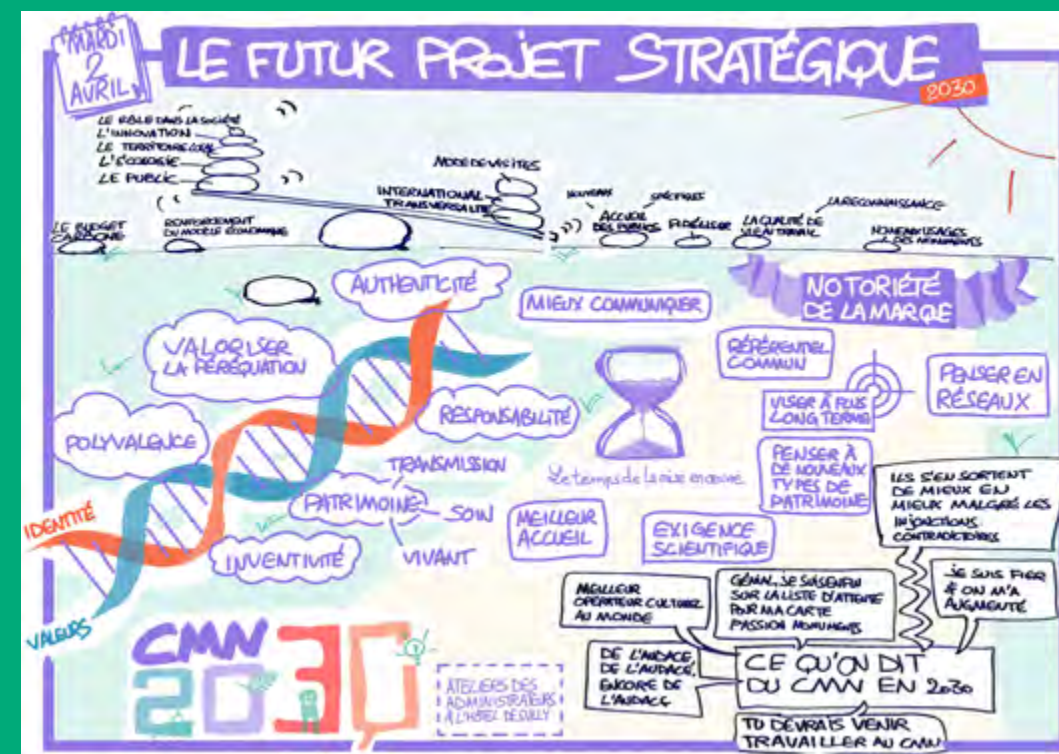 MARDI
2
AVRIL
LE FUTUR PROJET STRATÉGIQUE
2030
LE RÔLE DANS LA SOCIÉTÉ
L'INNOVATION
LE TERRITOIRE LOCAL
L'ÉCOLOGIE
LE PUBLIC
LE BUDGET
CARBONE
RENFORCEMENT
DU MODÈLE ÉCONOMIQUE
MODE DE VISITES
INTERNATIONAL
TRANSVERSALITÉ
NOUVEAUX
SPÉCIFIQUES
ACCUEIL
DES PUBLICS
FIDÉLISER
LA QUALITÉ DE
VIE AU TRAVAIL
LA RECONNAISSANCE
NOUVEAUX USAGES
DES MONUMENTS
AUTHENTICITÉ
VALORISER
LA PÉRÉQUATION
POLYVALENCE
RESPONSABILITÉ
TRANSMISSION
PATRIMOINE
SOIN
VIVANT
INVENTIVITÉ
IDENTITÉ
VALEURS
MIEUX COMMUNIQUER
Le temps de la mise en œuvre
MEILLEUR
ACCUEIL
EXIGENCE
SCIENTIFIQUE
NOTORIÉTÉ
DE LA MARQUE
RÉFÉRENTIEL
COMMUN
VISER À PLUS
LONG TERME
PENSER EN
RÉSEAUX
PENSER À
DE NOUVEAUX
TYPES DE
PATRIMOINE
ILS S'EN SORTENT
DE MIEUX EN
MIEUX MALGRÉ LES
INJONCTIONS
CONTRADICTOIRES
MEILLEUR
OPÉRATEUR CULTUREL
AU MONDE
GÉNIAL, JE SUIS ENFIN
SUR LA LISTE D'ATTENTE
POUR MA CARTE
PASSION MONUMENTS
JE SUIS FIER
& ON M'A
AUGMENTÉ
DE L'AUDACE,
DE L'AUDACE,
ENCORE DE
L'AUDACE
CE QU'ON DIT
DU CMN EN 2030
TU DEVRAIS VENIR
TRAVAILLER AU CMN
CMN
2030
ATELIERS DES
ADMINISTRATEURS
À L'HÔTEL DE SULLY